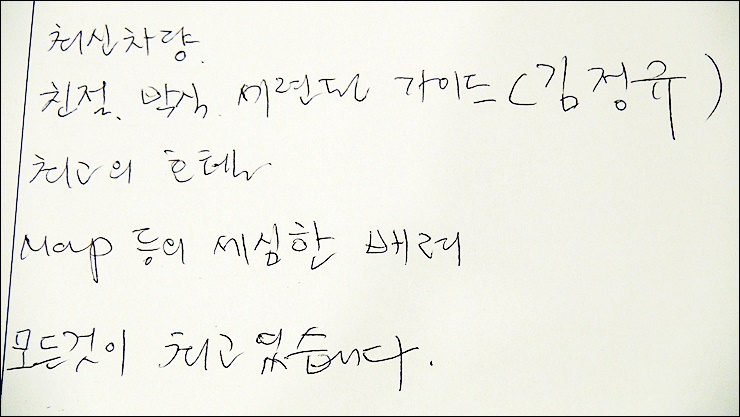 최신차량.
친절, 박식, 세련된 가이드 (김정규)
최고의 호텔
Map 등의 세심한 배려
모든것이 최고였습니다.